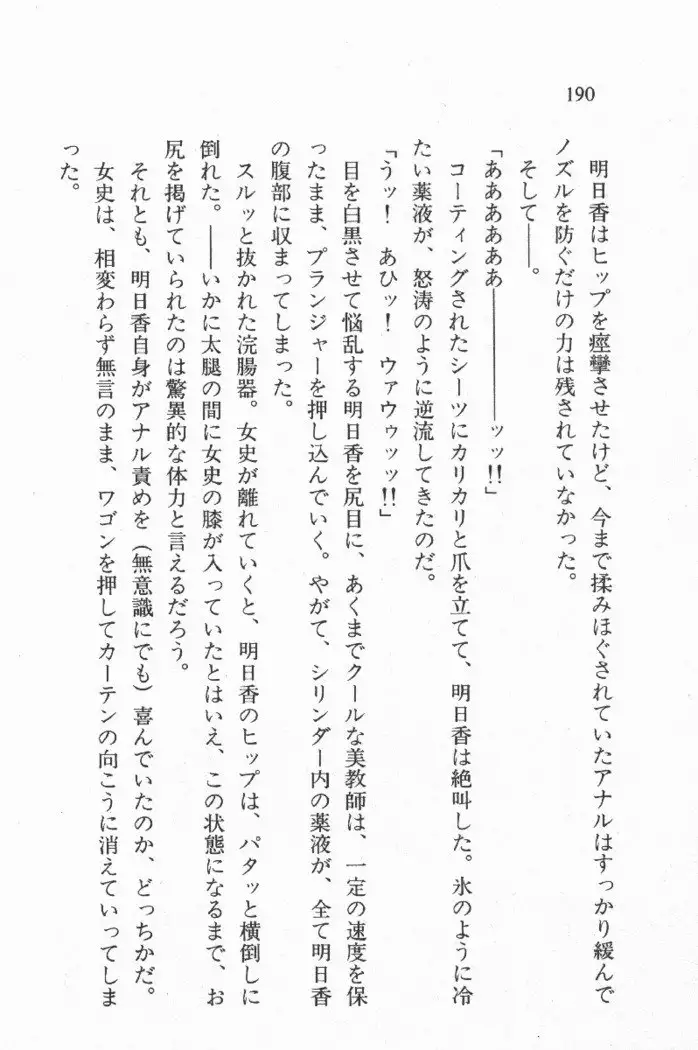 190
明日香はヒップを痙攣させたけど、今まで揉みほぐされていたアナルはすっかり緩んで
ノズルを防ぐだけの力は残されていなかった。
そして――。
「ああああああ――――――ッッ!!」
コーティングされたシーツにカリカリと爪を立てて、明日香は絶叫した。氷のように冷
たい薬液が、怒涛のように逆流してきたのだ。
「うッ！　あひッ！　ウァウゥッッ!!」
目を白黒させて悩乱する明日香を尻目に、あくまでクールな美教師は、一定の速度を保
ったまま、プランジャーを押し込んでいく。やがて、シリンダー内の薬液が、全て明日香
の腹部に収まってしまった。
スルッと抜かれた浣腸器。女史が離れていくと、明日香のヒップは、パタッと横倒しに
倒れた。――いかに太腿の間に女史の膝が入っていたとはいえ、この状態になるまで、お
尻を掲げていられたのは驚異的な体力と言えるだろう。
それとも、明日香自身がアナル責めを（無意識にでも）喜んでいたのか、どっちかだ。
女史は、相変わらず無言のまま、ワゴンを押してカーテンの向こうに消えていってしま
った。